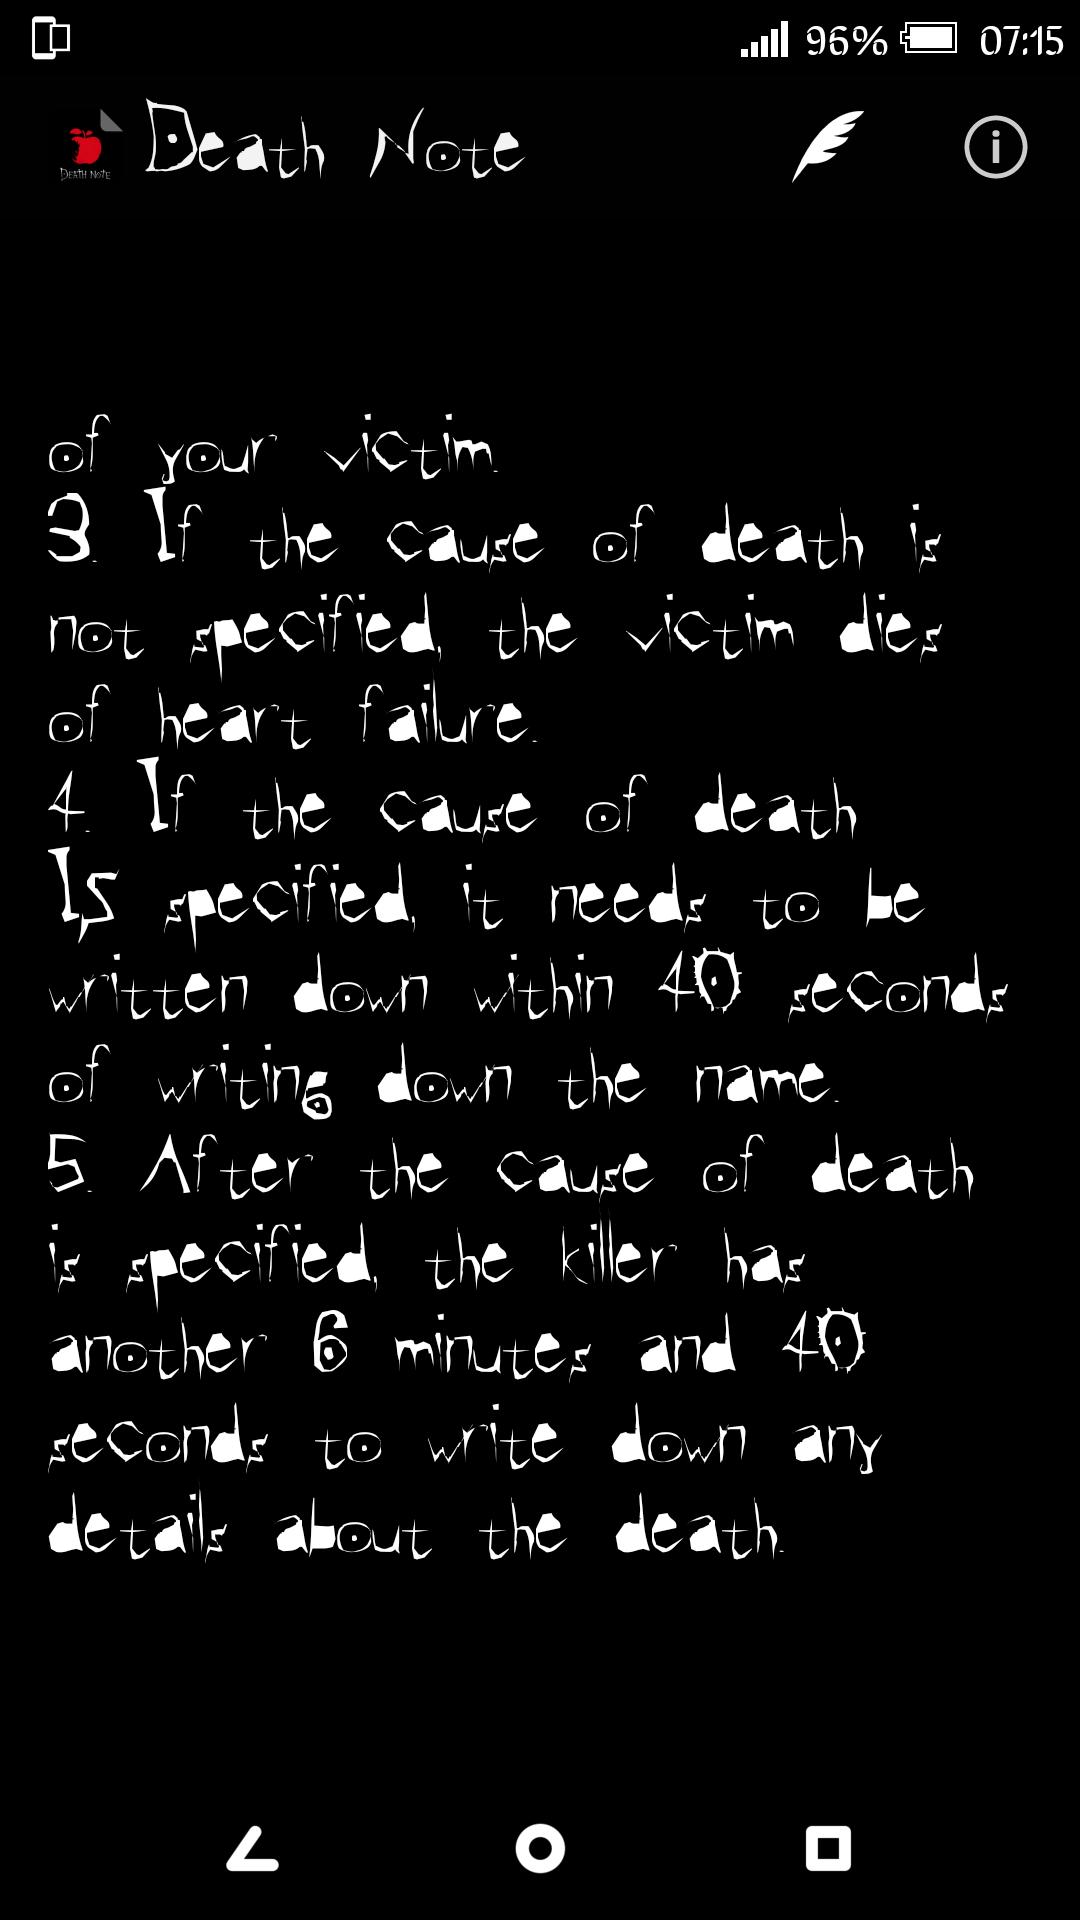 96% 07:15
DEATH NOTE
Death Note
of your victim.
3. If the cause of death is
not specified, the victim dies
of heart failure.
4. If the cause of death
Is specified, it needs to be
written down within 40 seconds
of writing down the name.
5. After the cause of death
is specified, the killer has
another 6 minutes and 40
seconds to write down any
details about the death.